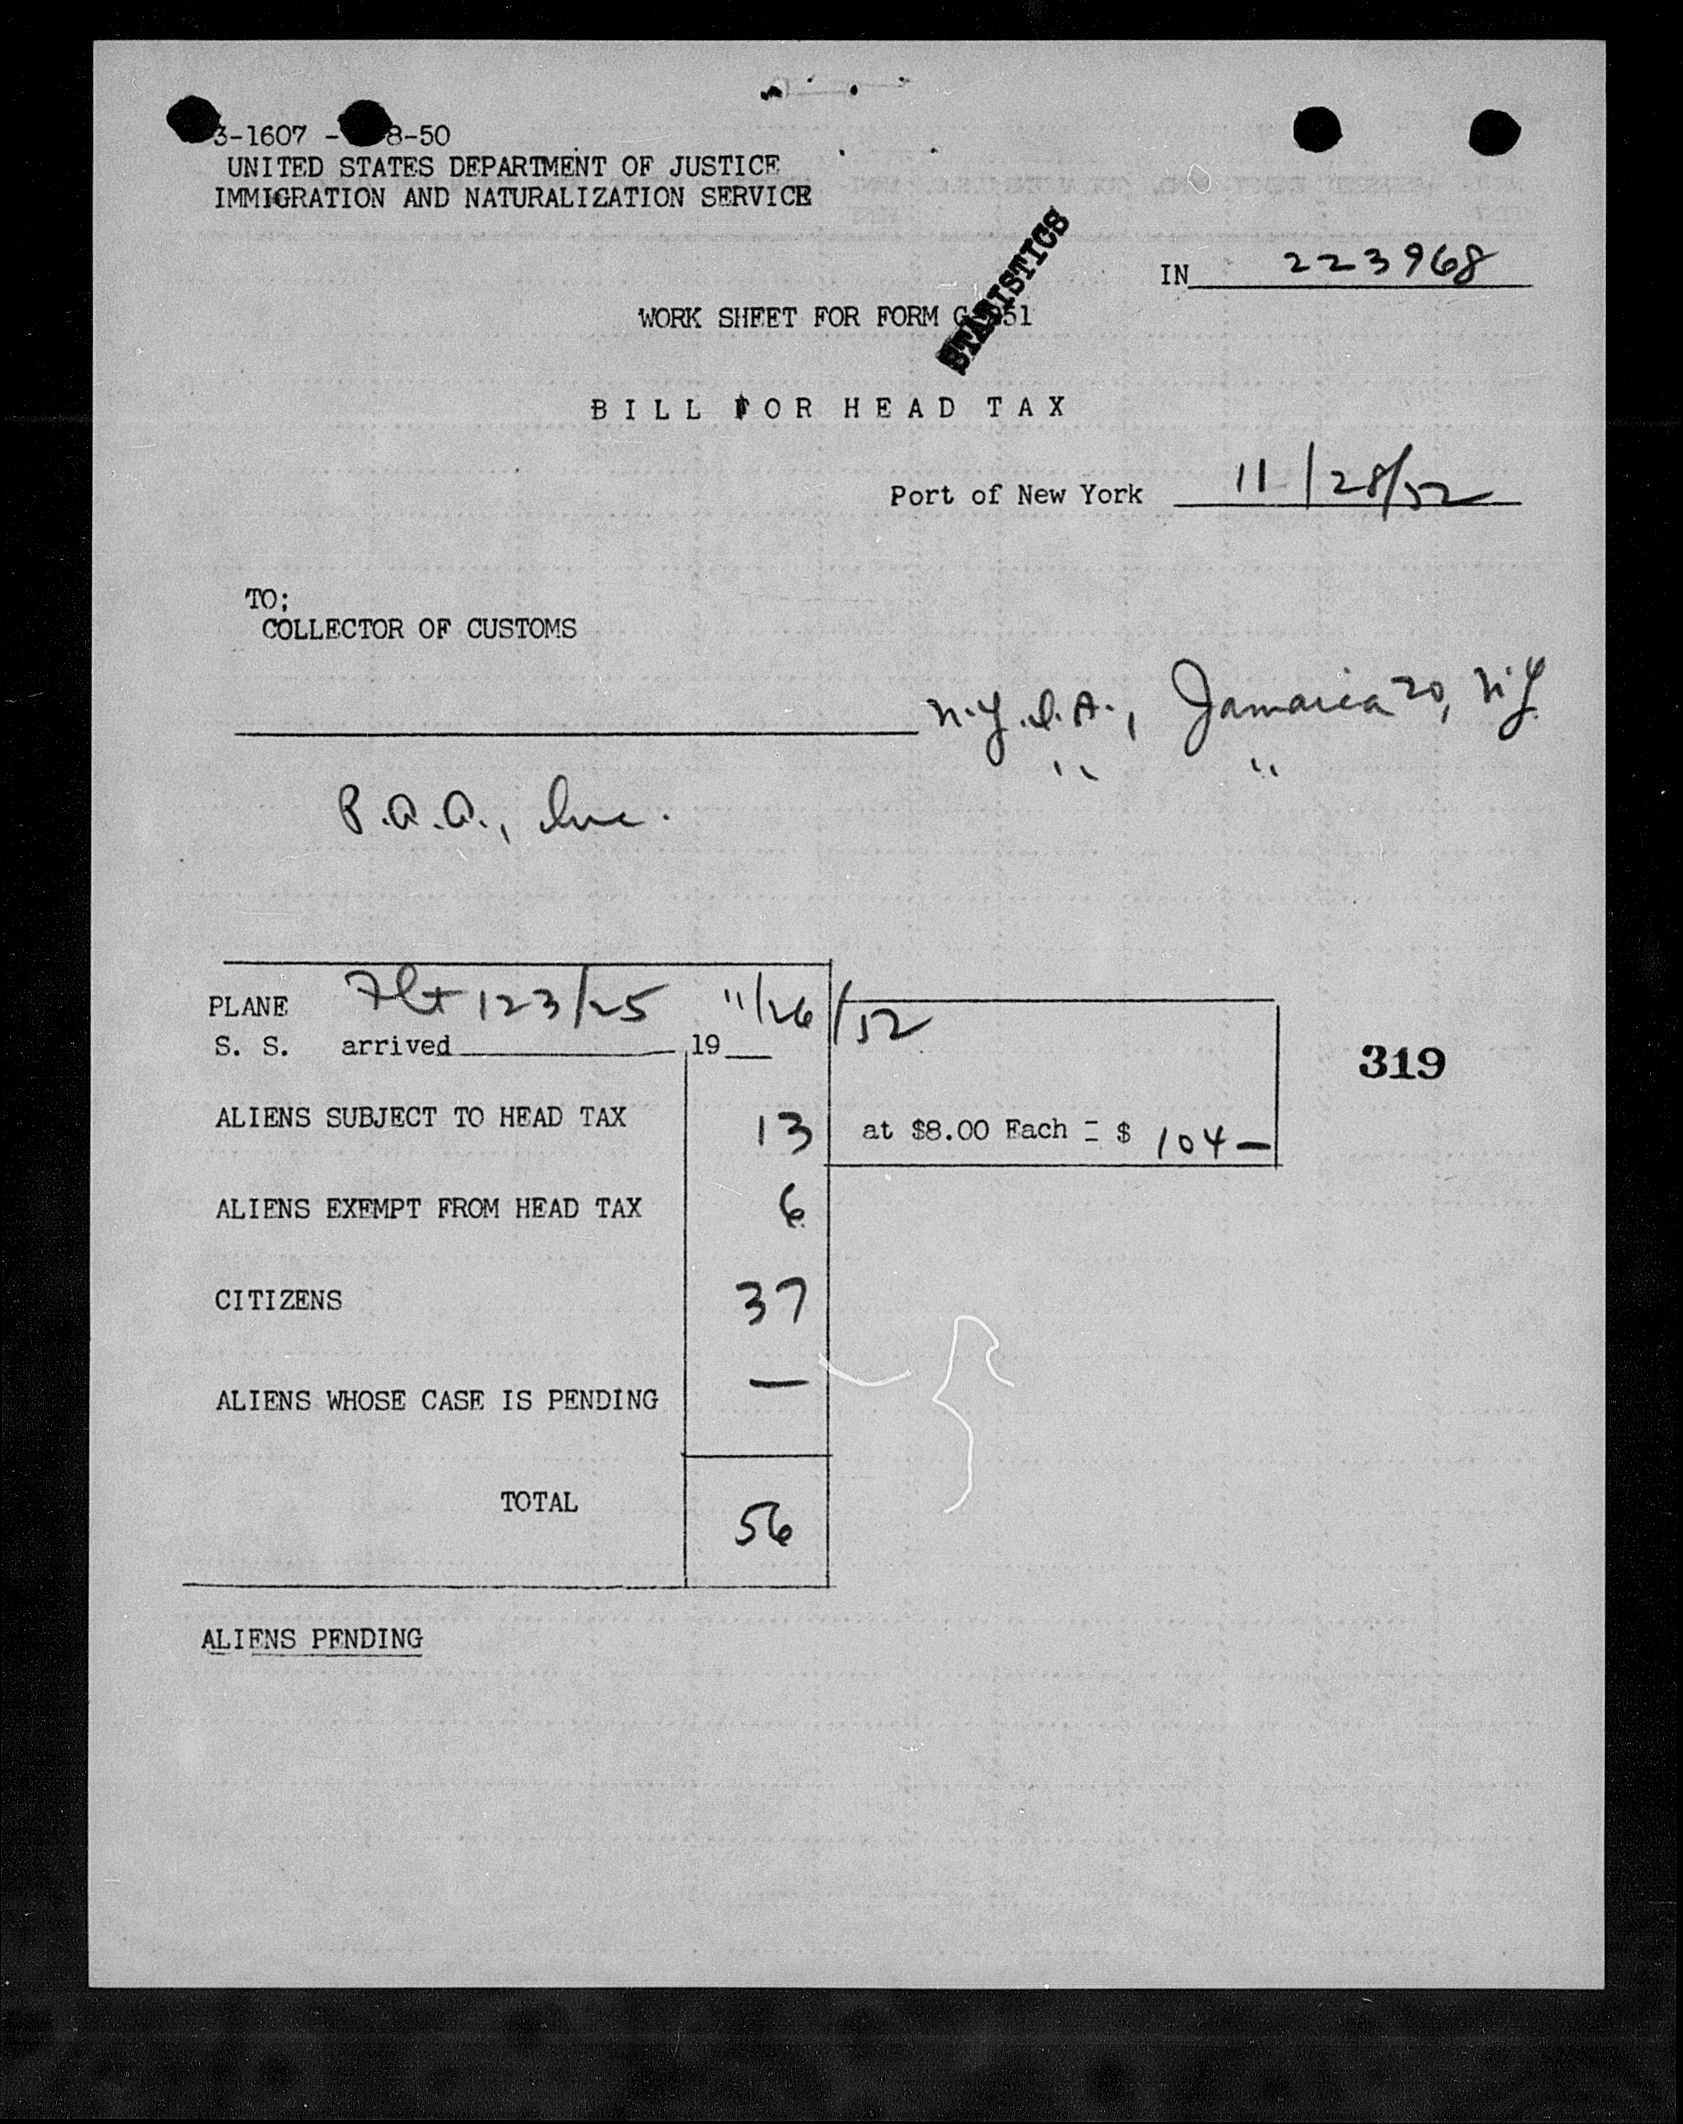 3-1607 - 8-50
UNITED STATES DEPARTMENT OF JUSTICE
IMMIGRATION AND NATURALIZATION SERVICE
STATISTICS
IN 223968
WORK SHEET FOR FORM G 51
BILL FOR HEAD TAX
Port of New York 11/28/52
TO;
COLLECTOR OF CUSTOMS
N.Y.I.A., Jamaica 20, N.Y.
" "
P.A.A., Inc.
PLANE Flt 123/25 11/26/52
S. S. arrived 19
319
ALIENS SUBJECT TO HEAD TAX 13 at $8.00 Each = $ 104 —
ALIENS EXEMPT FROM HEAD TAX 6
CITIZENS 37
ALIENS WHOSE CASE IS PENDING —
TOTAL 56
ALIENS PENDING